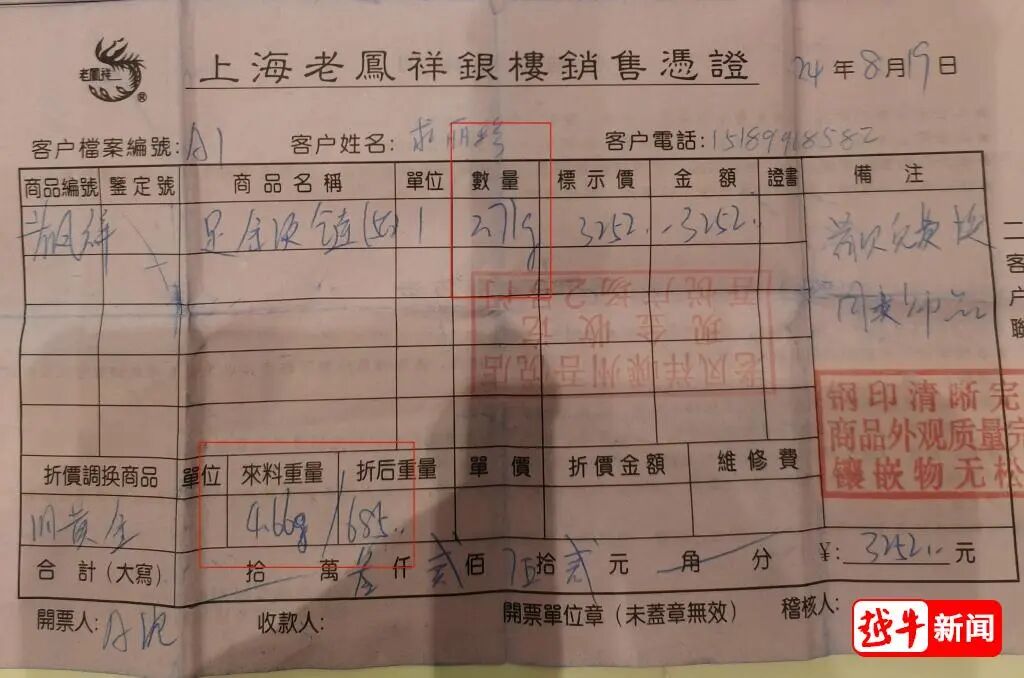 老鳳祥 ®
上海老鳳祥銀樓銷售憑證
24年8月19日
客户檔案編號:A1 客户姓名: 客户電話:15189918582
商品編號 鑒定號 商品名稱 單位 數量 標示價 金額 證書 備注
足金 1 2.71g 3252. -3252. 首次免费换
周末
老凤祥 州吾悦店
现金收讫
吾悦广场2号门
钢印清晰完
商品外观质量完
镶嵌物无松
二客户聯
折價調换商品 單位 來料重量 折后重量 單價 折價金額 維修費
旧黄金 4.66g /685..
合計(大寫) 拾 萬叁仟贰佰伍拾贰元 角 分 ¥:3252..元
開票人:A 收款人: 開票單位章(未蓋章無效) 稽核人:
越牛新闻